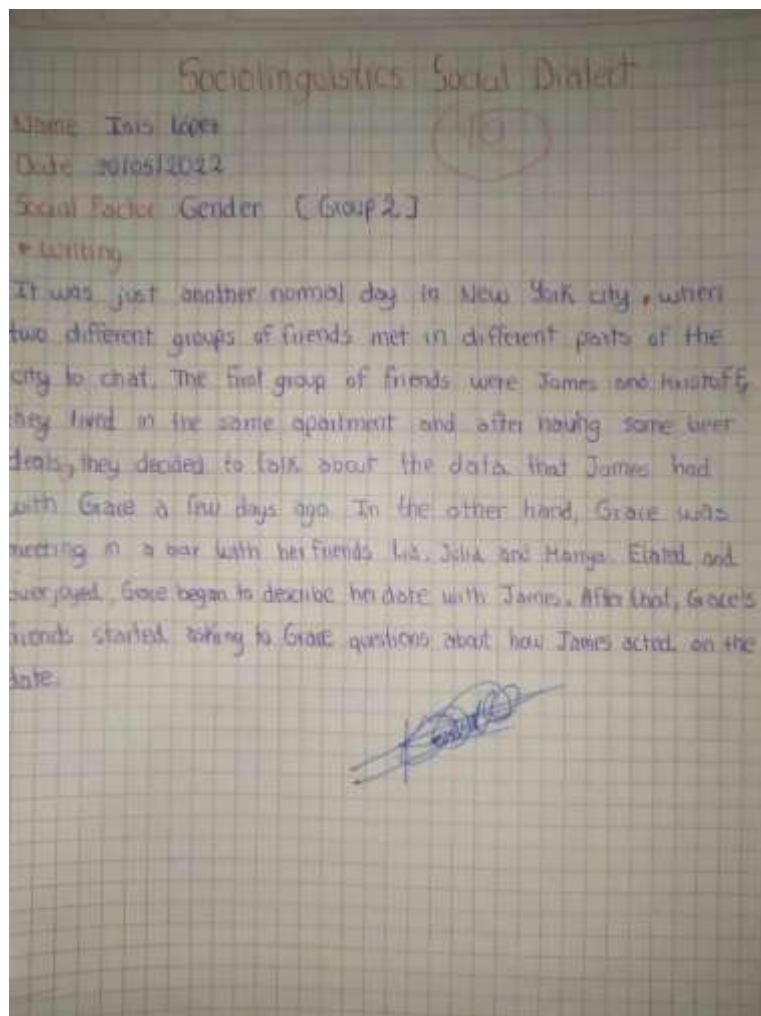 Sociolinguistics Social Dialect
Name Inis López
10
Date 30/05/2022
Social Factor Gender [Group 2]
* Writing
It was just another normal day in New York city, when
two different groups of friends met in different parts of the
city to chat. The first group of friends were James and Kristoff,
they lived in the same apartment and after having some beer
deals, they decided to talk about the data that James had
with Grace a few days ago. In the other hand, Grace was
meeting in a bar with her friends Lia, Julia and Mariya. Elated and
overjoyed, Grace began to describe her date with James. After that, Grace's
friends started asking to Grace questions about how James acted on the
date.